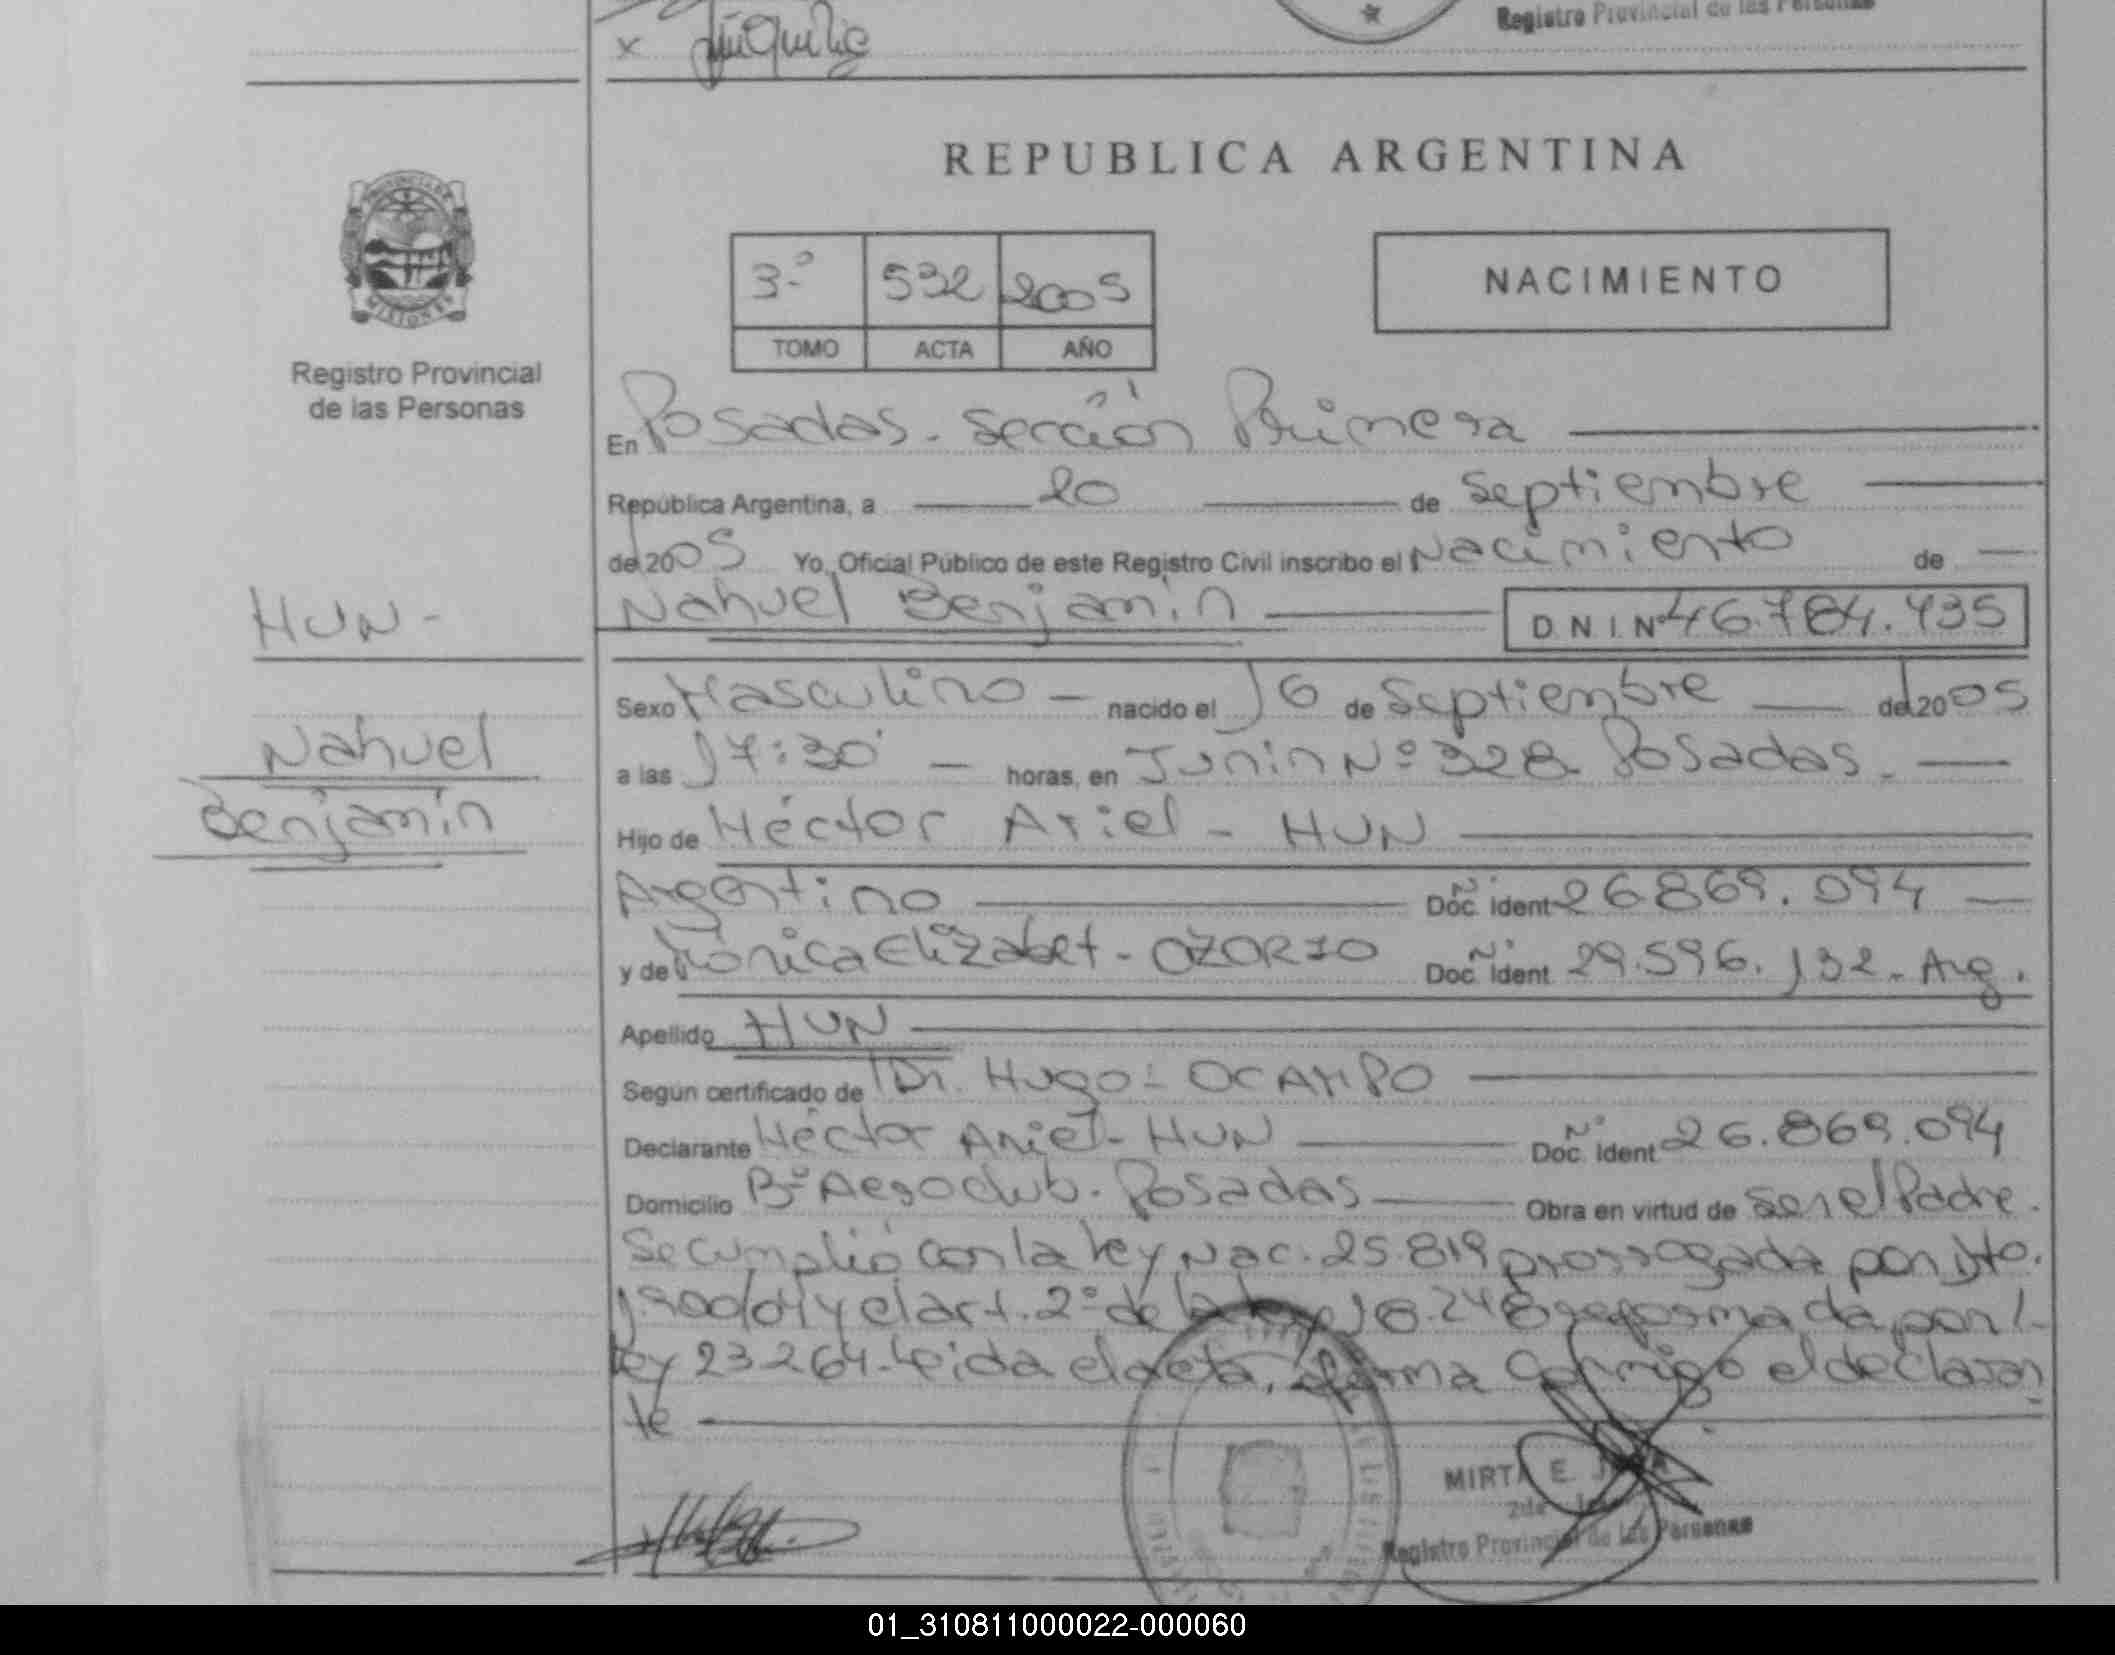 Registro Provincial de las Personas
x
REPUBLICA ARGENTINA
PROVINCIA DE
MISIONES
Registro Provincial
de las Personas
3º 532 2005
TOMO ACTA AÑO
NACIMIENTO
En Posadas. Sección Primera
República Argentina, a 20 de Septiembre
del 2005 Yo, Oficial Público de este Registro Civil inscribo el Nacimiento de
Nahuel Benjamín D.N.I. Nº 46.784.435
HUN-
Nahuel
Benjamín
Sexo Masculino - nacido el 16 de Septiembre del 2005
a las 17:30' - horas, en Junín Nº 328 Posadas.
Hijo de Héctor Ariel - HUN
Argentino Doc. Nº ident 26.869.094
y de Mónica Elizabet - OZORIO Doc. Nº Ident. 29.596.132 - Arg.
Apellido HUN
Según certificado de Dr. Hugo - OCAMPO
Declarante Héctor Ariel - HUN Doc. Nº Ident 26.869.094
Domicilio Bº Aeroclub. Posadas Obra en virtud de Ser el Padre.
Se cumplió con la Ley Nac. 25.819 prorrogada por Dto.
1.900/04 y el art. 2º de la Ley 18.248 reformada por l-
Ley 23264. Leída el acta, firma conmigo el declaran
te
MIRTA E.
Registro Provincial de las Personas
01_310811000022-000060